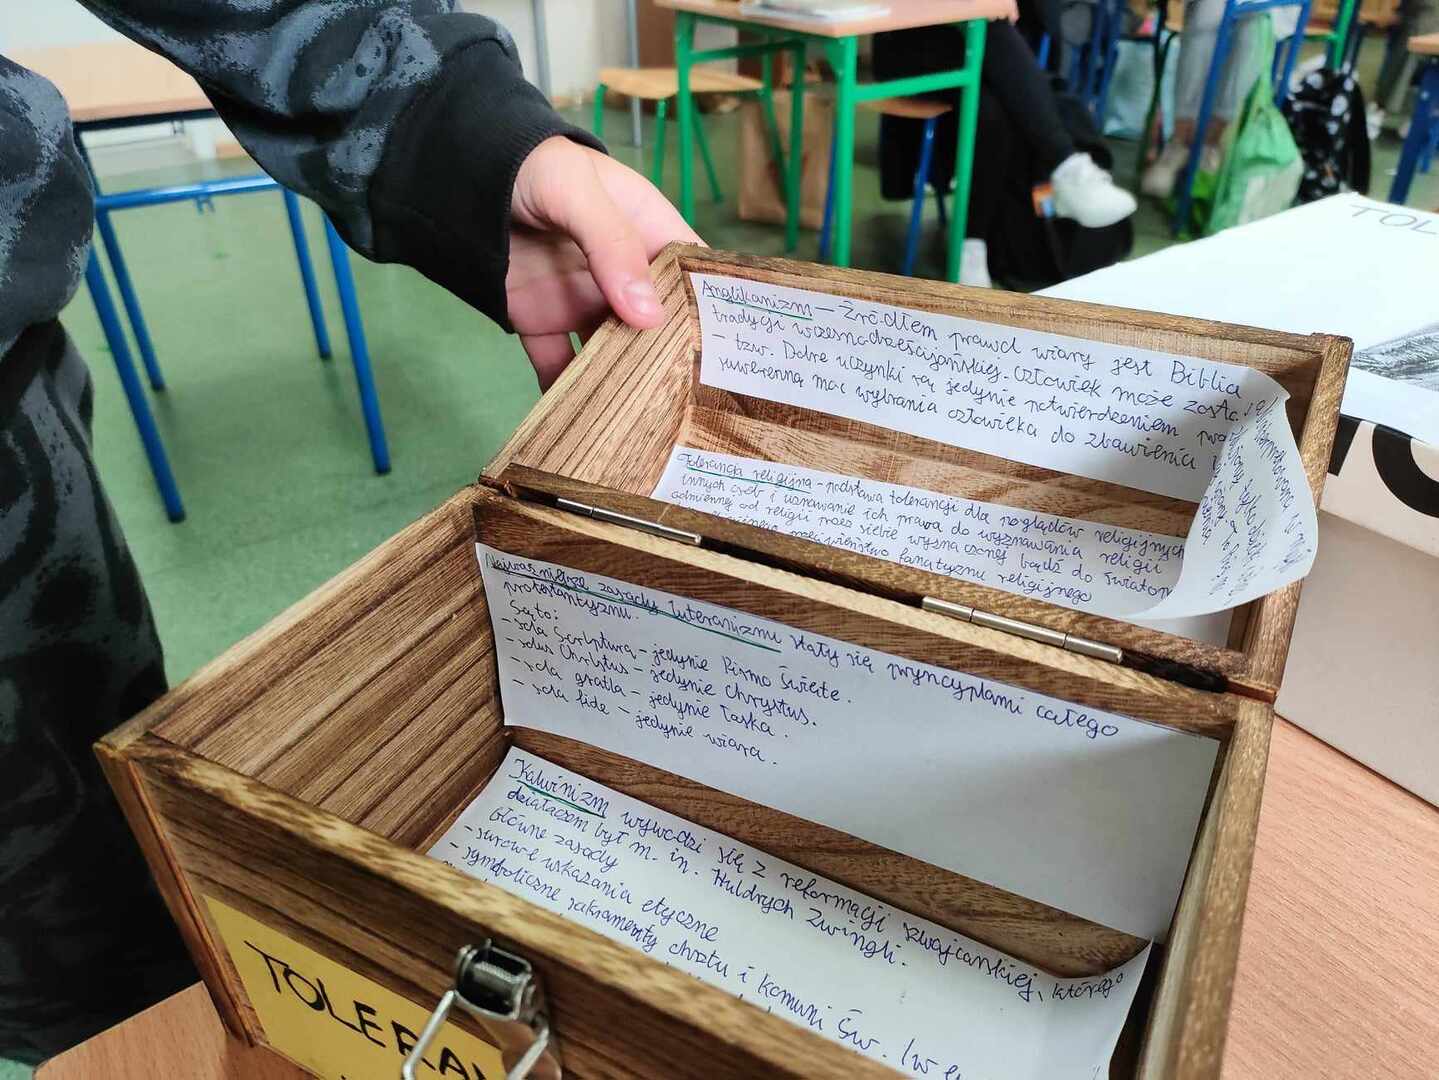 Anglikanizm – Źródłem prawd wiary jest Biblia
tradycji wczesnochrześcijańskiej. Człowiek może zostać
– tzw. Dobre uczynki są jedynie potwierdzeniem
suwerenną moc wybrania człowieka do zbawienia
Tolerancja religijna – podstawa tolerancji dla poglądów religijnych
innych osób i uznawanie ich prawa do wyznawania religii
odmiennej od religii przez siebie wyznaczonej bądź do światop
przeciwieństwo fanatyzmu religijnego
Najważniejsze zasady luteranizmu stały się pryncypiami całego
protestantyzmu.
Są to:
– sola Scriptura – jedynie Pismo Święte.
– solus Christus – jedynie Chrystus.
– sola gratia – jedynie łaska.
– sola fide – jedynie wiara.
Kalwinizm wywodzi się z reformacji szwajcarskiej, którego
działaczem był m. in. Huldrych Zwingli.
Główne zasady
– surowe wskazania etyczne
– symboliczne sakramenty chrztu i komuni Św. (w
TOLERAN
TOL